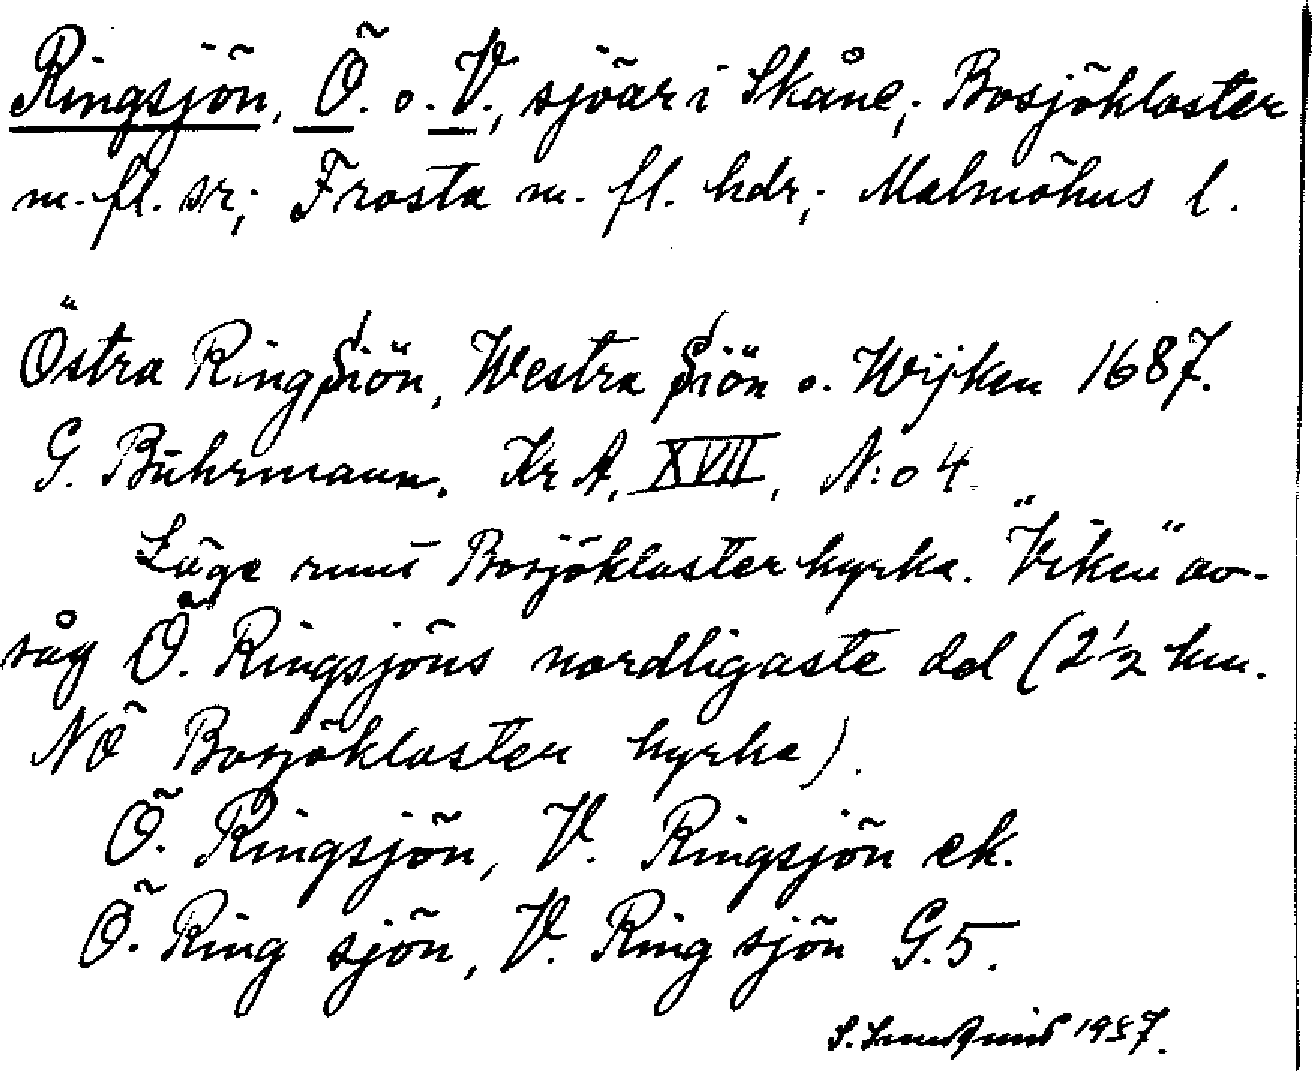 Ringsjön, Ö. o. V., sjöar i Skåne; Bosjökloster
m. fl. sr; Frosta m. fl. hdr; Malmöhus l.
Östra RingSiön, Westra Siön o. Wijken 1687.
G. Buhrmann. Kr A. XVII, N:o 4
Läge runt Bosjökloster kyrka. "Viken" av-
såg Ö. Ringsjöns nordligaste del (2 1/2 km.
NÖ Bosjökloster kyrka).
Ö. Ringsjön, V. Ringsjön ek.
Ö. Ring sjön, V. Ring sjön G.5.
1957.